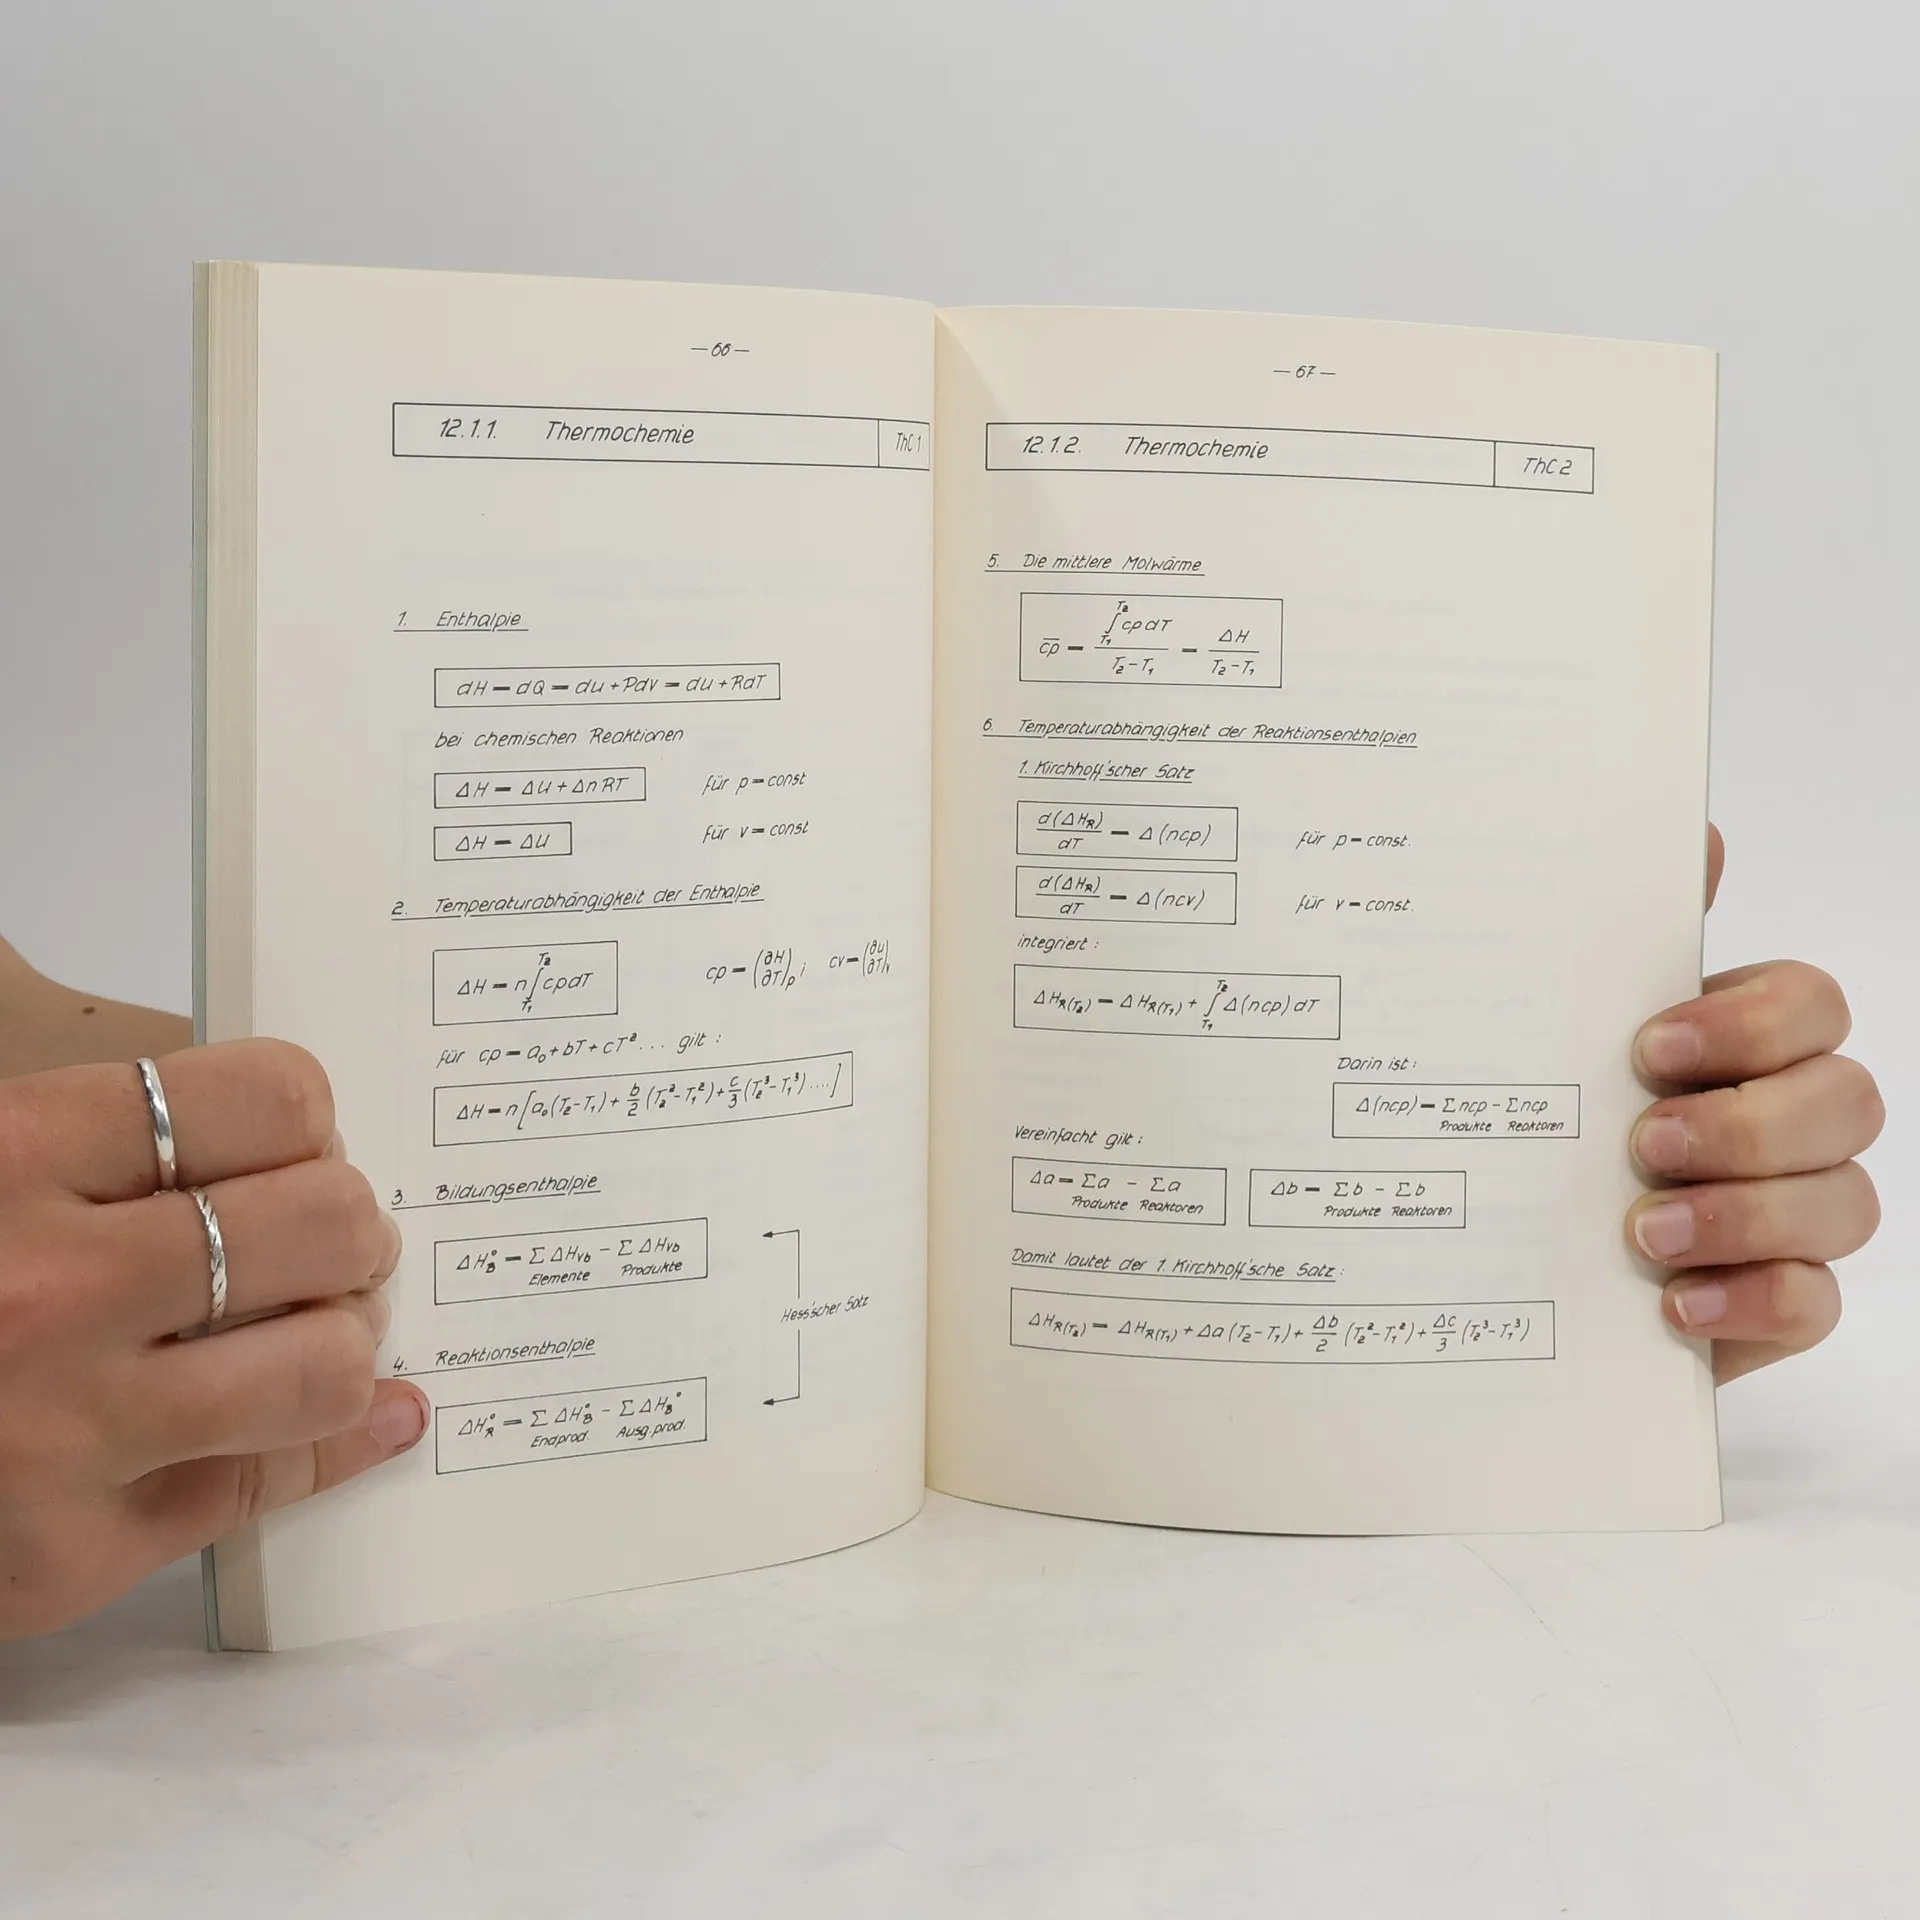 — 66 —
12.1.1. Thermochemie ThC 1
1. Enthalpie
dH = dQ = du + Pdv = du + RdT
bei chemischen Reaktionen
ΔH = ΔU + Δn RT für p = const
ΔH = ΔU für v = const
2. Temperaturabhängigkeit der Enthalpie
ΔH = n ∫_{T₁}^{T₂} cp dT cp = (∂H/∂T)_p ; cv = (∂u/∂T)_v
für cp = a₀ + bT + cT² . . . gilt :
ΔH = n [a₀ (T₂ - T₁) + b/2 (T₂² - T₁²) + c/3 (T₂³ - T₁³) ....]
3. Bildungsenthalpie
ΔH°_B = Σ ΔH_vb - Σ ΔH_vb
Elemente Produkte
Hess'scher Satz
4. Reaktionsenthalpie
ΔH°_R = Σ ΔH°_B - Σ ΔH_B°
Endprod. Ausg.prod.
— 67 —
12.1.2. Thermochemie ThC 2
5. Die mittlere Molwärme
c̅p̅ = ∫_{T₁}^{T₂} cp dT / (T₂ - T₁) = ΔH / (T₂ - T₁)
6. Temperaturabhängigkeit der Reaktionsenthalpien
1. Kirchhoff'scher Satz
d(ΔH_R)/dT = Δ(ncp) für p = const.
d(ΔH_R)/dT = Δ(ncv) für v = const.
integriert :
ΔH_R(T₂) = ΔH_R(T₁) + ∫_{T₁}^{T₂} Δ(ncp) dT
Darin ist :
Δ(ncp) = Σncp - Σncp
Produkte Reaktoren
Vereinfacht gilt :
Δa = Σa - Σa Δb = Σb - Σb
Produkte Reaktoren Produkte Reaktoren
Damit lautet der 1. Kirchhoff'sche Satz :
ΔH_R(T₂) = ΔH_R(T₁) + Δa (T₂ - T₁) + Δb/2 (T₂² - T₁²) + Δc/3 (T₂³ - T₁³)